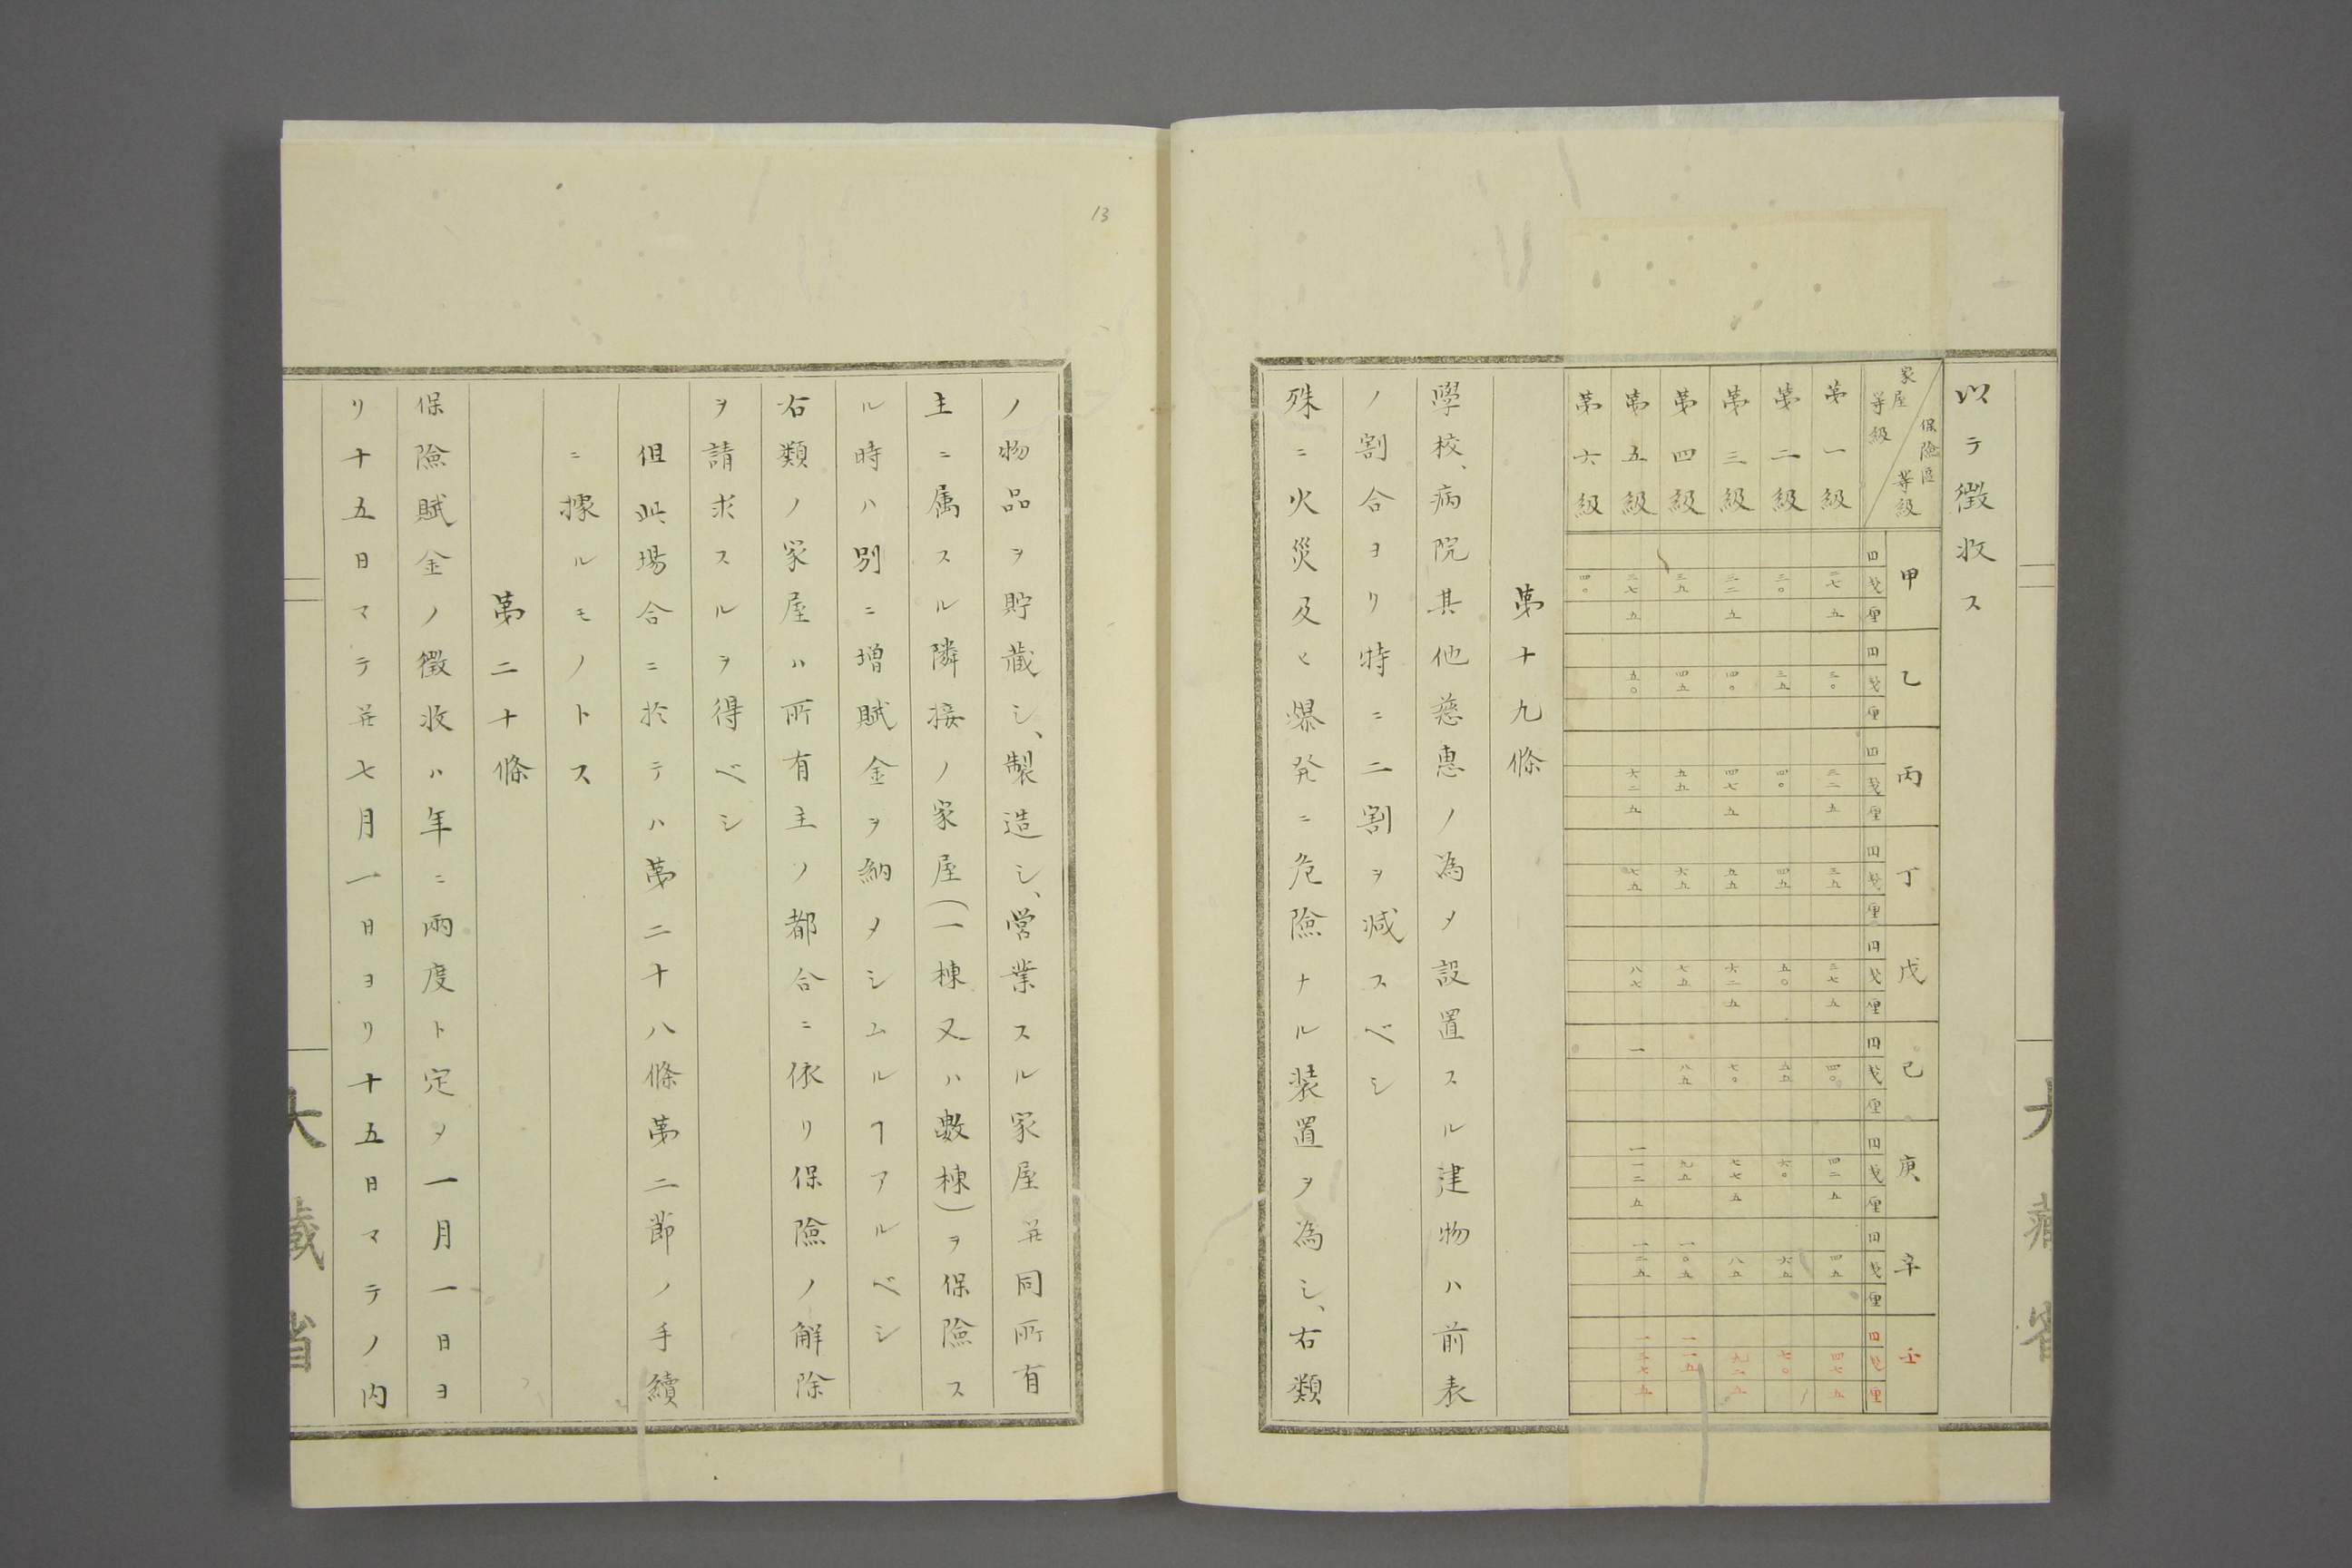 以テ徴収ス
家屋等級 保險區等級
甲 乙 丙 丁 戊 己 庚 辛 壬
円 戔 厘 円 戔 厘 円 戔 厘 円 戔 厘 円 戔 厘 円 戔 厘 円 戔 厘 円 戔 厘 円 戔 厘
第一級 二七五 三〇 三二五 三五 三七五 四〇 四二五 四五 四七五
第二級 三〇 三五 四〇 四五 五〇 五五 六〇 六五 七〇
第三級 三二五 四〇 四七五 五五 六二五 七〇 七七五 八五 九二五
第四級 三五 四五 五五 六五 七五 八五 九五 一〇五 一一五
第五級 三七五 五〇 六二五 七五 八七 一 一一二五 一二五 一三七五
第六級 四〇
第十九條
學校、病院其他慈惠ノ為メ設置スル建物ハ前表
ノ割合ヨリ特ニ二割ヲ減スベシ
殊ニ火災及ヒ爆発ニ危險ナル装置ヲ為シ、右類
ノ物品ヲ貯蔵シ、製造シ、営業スル家屋并同所有
主ニ属スル隣接ノ家屋(一棟又ハ數棟)ヲ保險ス
ル時ハ別ニ増賦金ヲ納メシムルヿアルベシ
右類ノ家屋ハ所有主ノ都合ニ依リ保險ノ解除
ヲ請求スルヲ得ベシ
但此場合ニ於テハ第二十八條第二節ノ手續
ニ據ルモノトス
第二十條
保險賦金ノ徴収ハ年ニ兩度ト定メ一月一日ヨ
リ十五日マテ并七月一日ヨリ十五日マテノ内
大藏省
13